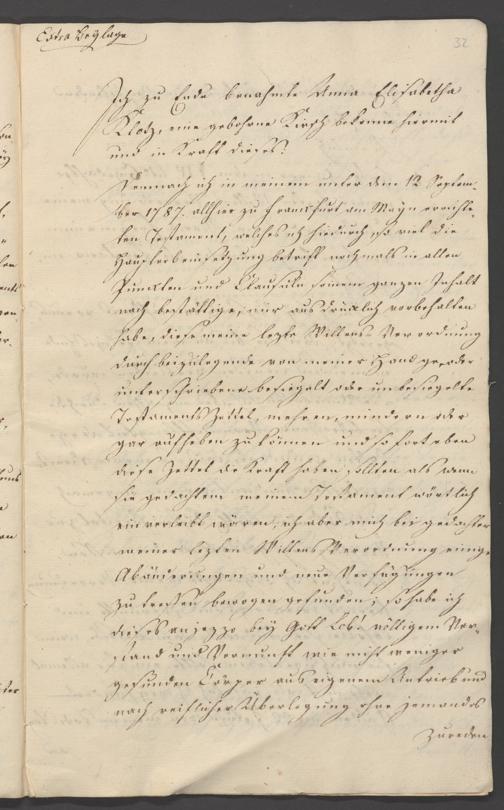 Extra Beylage
32
Ich zu Ende benahmte Anna Elisabetha
Klotz, eine gebohrne Kirsch bekenne hiermit
und in Kraft dieses:
Demnach ich in meinem unter dem 12 Septem-
ber 1787. allhier zu Franckfurt am Mayn errichte-
ten Testament, welches ich hierdurch, so viel die
Haupterbeinsetzung betrift nochmals in allen
Puncten und Clausuln seinem ganzen Inhalt
nach bestättige, mir ausdrücklich vorbehalten
habe, diese meine letzte Willens-Verordnung
durch beizulegende von meiner Hand ge- oder
unterschriebene besiegelt oder unbesiegelte
Testaments Zettel, mehren, mindern oder
gar aufheben zu können und so fort eben
diese Zettel die Kraft haben sollten als wann
sie gedachtem meinem Testament wörtlich
einverleibt wären, ich aber mich bei gedachter
meiner letzten Willens Verordnung einige
Abänderungen und neue Verfügungen
zu treffen bewogen gefunden; so habe ich
dieses anjezzo bey Gott Lob! völligem Ver-
stand und Vernunft wie nicht weniger
gesunden Cörper aus eigenem Antrieb und
nach reiflicher Überlegung ohne jemandes
Zureden